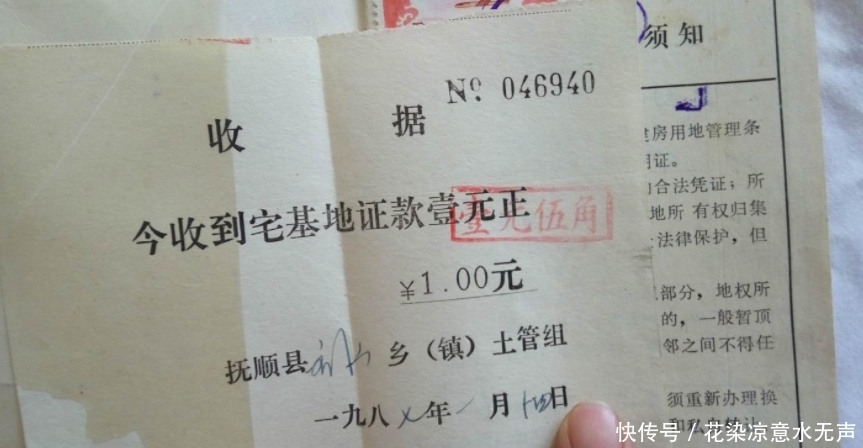 须知
№ 046940
收据
今收到宅基地证款壹元正
壹元伍角
¥1.00元
抚顺县 乡（镇）土管组
一九八 年一月 日
房用地管理条
证。
合法凭证；所
地所有权归集
法律保护，但
部分，地权所
的，一般暂顶
邻之间不得任
须重新办理换
快传号／花染凉意水无声